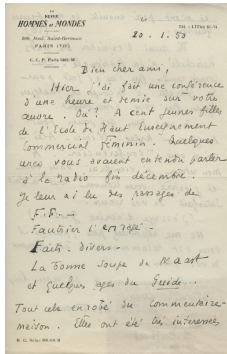 LA REVUE
HOMMES et MONDES
Boul. Saint-Germain
PARIS (VIIe)
C. C. P. Paris
20.1.50
Bien cher ami,
Hier j'ai fait une conférence
d'une heure et demie sur votre
œuvre. Où ? A cent jeunes filles
de l'Ecole de Haut Enseignement
Commercial Féminin. Quelques
unes vous avaient entendu parler
à la radio fin décembre.
Je leur ai lu des passages de
Fautrier l'enragé -
Faits-Divers -
La bonne soupe de Maast
et quelques pages du Guide...
Tout cela enrobé du commentaire-
maison. Elles ont été très intéressées